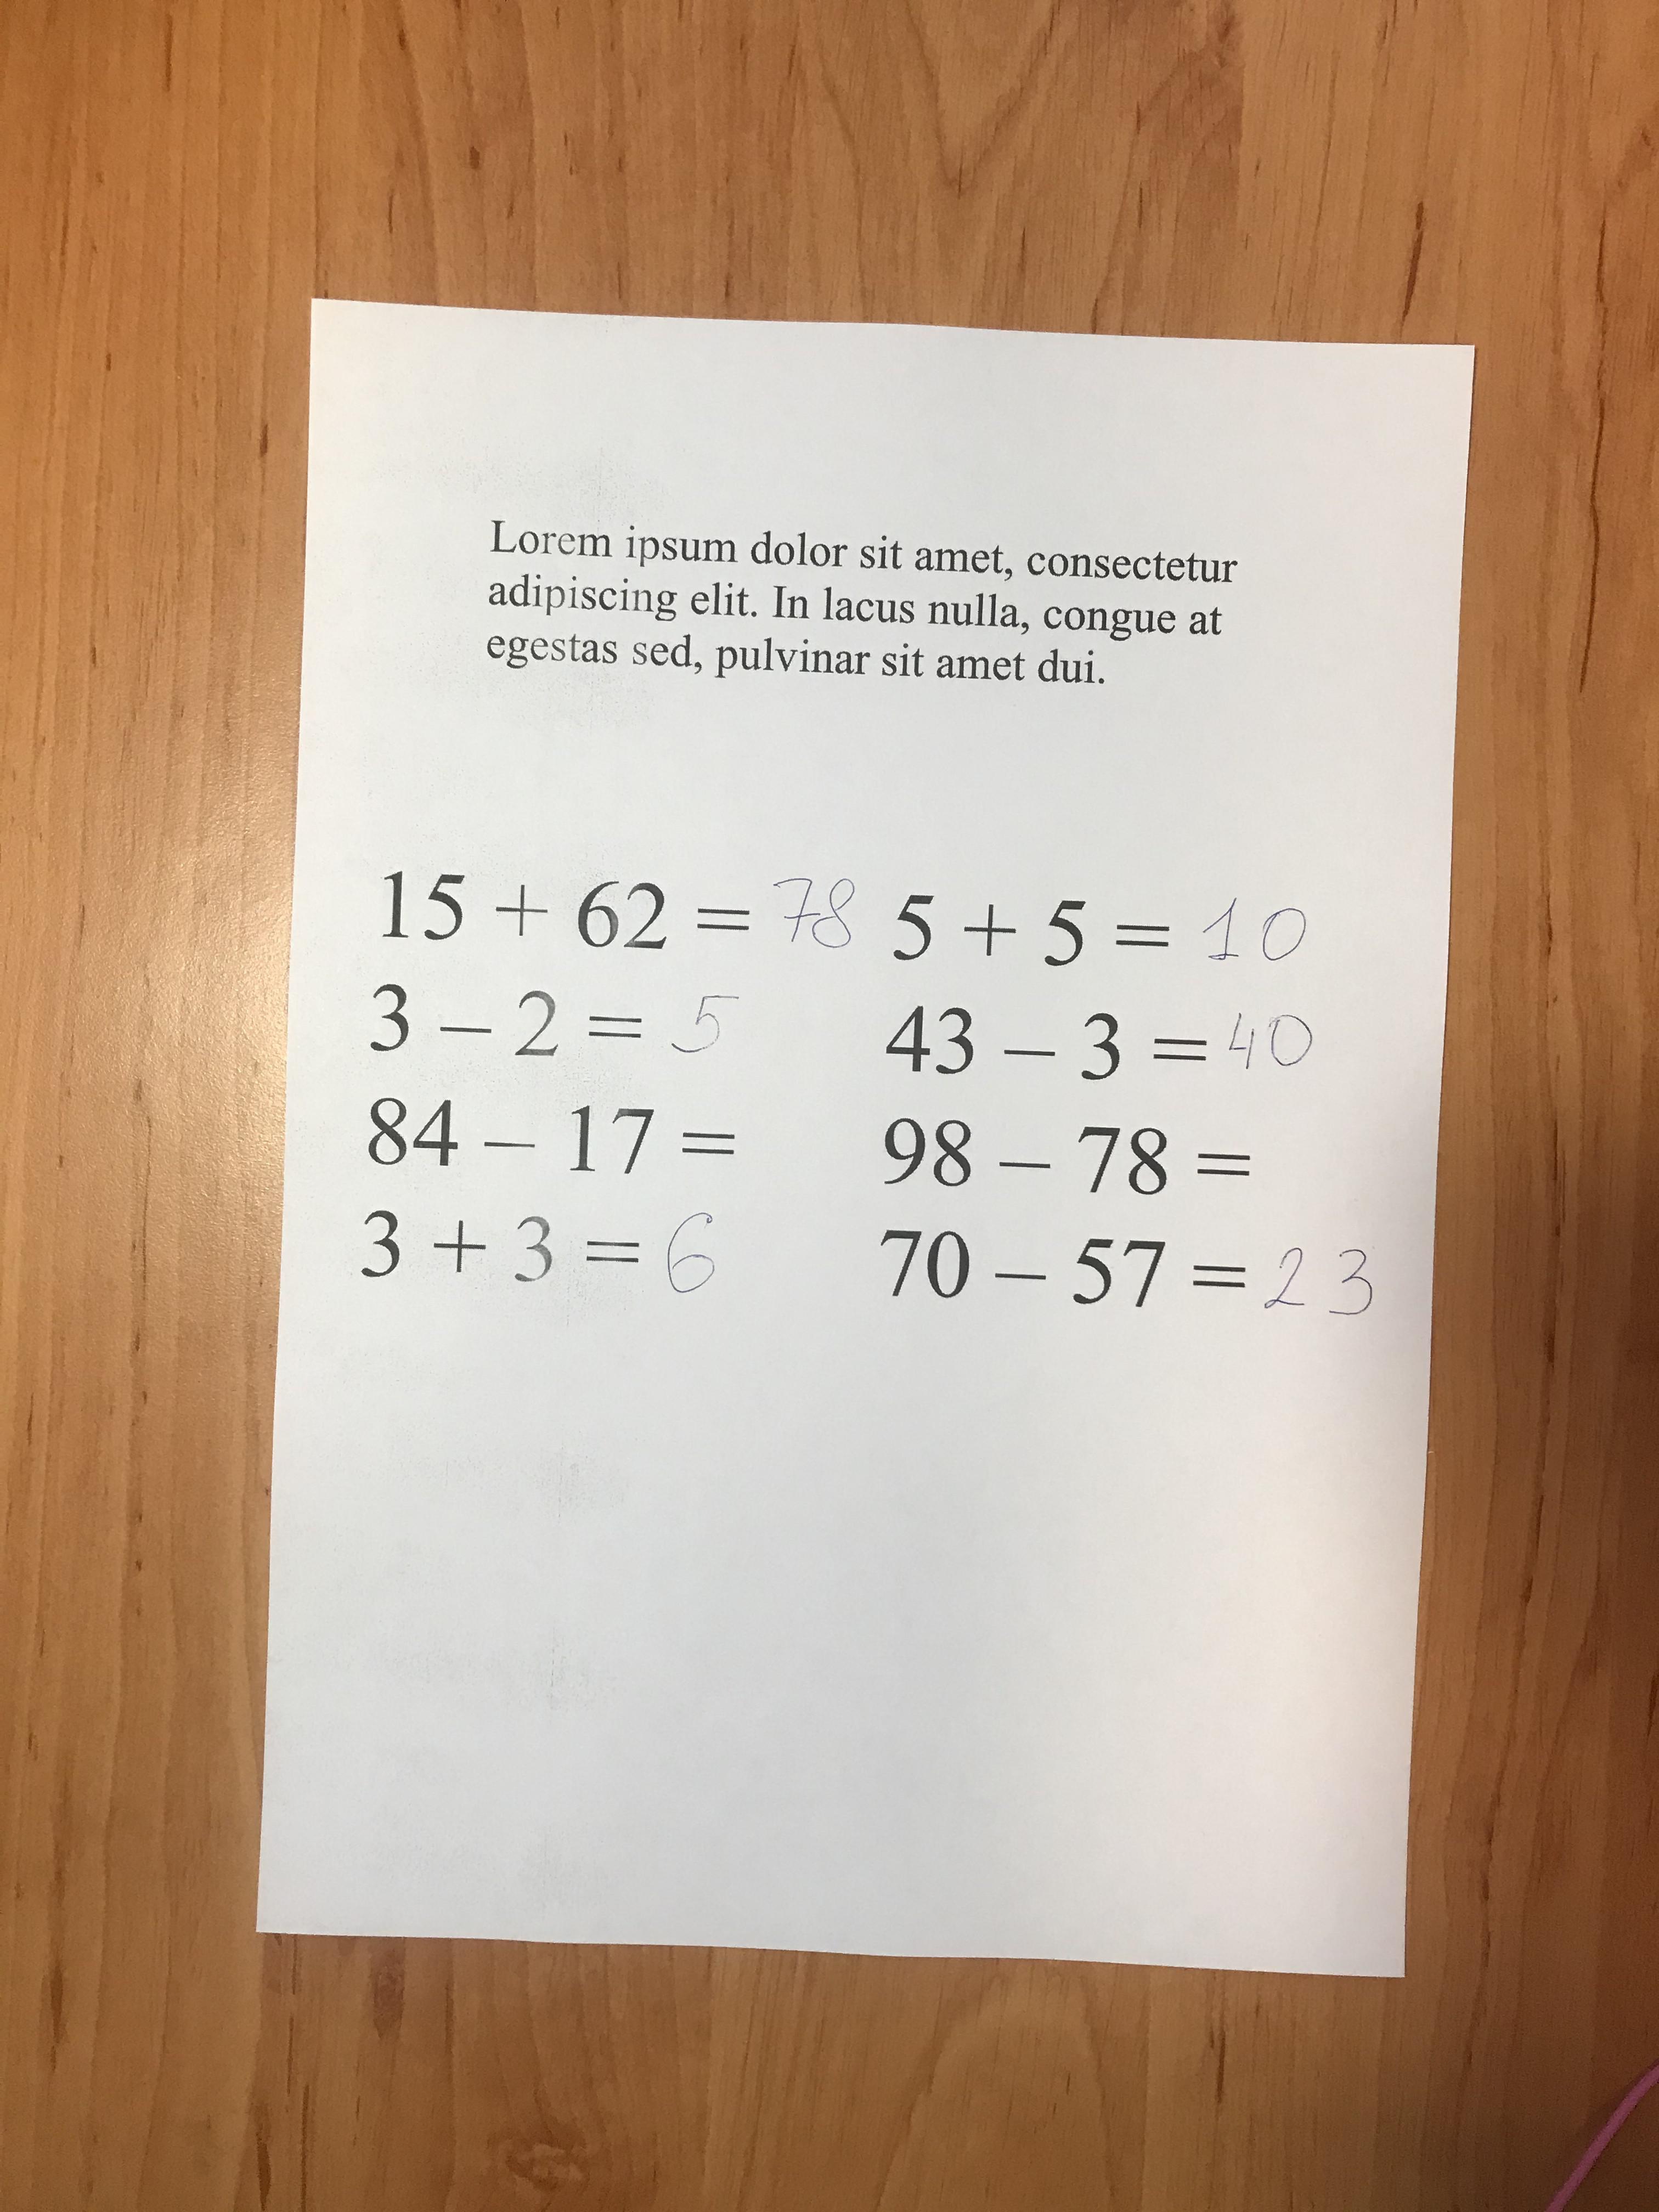 Lorem ipsum dolor sit amet, consectetur
adipiscing elit. In lacus nulla, congue at
egestas sed, pulvinar sit amet dui.
15 + 62 = 78 5 + 5 = 10
3 – 2 = 5 43 – 3 = 40
84 – 17 = 98 – 78 =
3 + 3 = 6 70 – 57 = 23